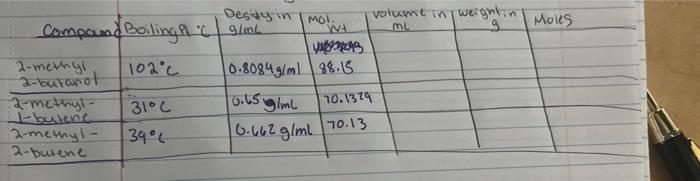 Compound Boiling Pt °C Desity in g/mL Mol. Wt volume in mL weight in g Moles
2-methyl 2-butanol 102°C 0.8084g/ml 88.15
2-methyl-1-butene 31°C 0.65 g/mL 70.1329
2-methyl-2-butene 39°C 0.662 g/mL 70.13